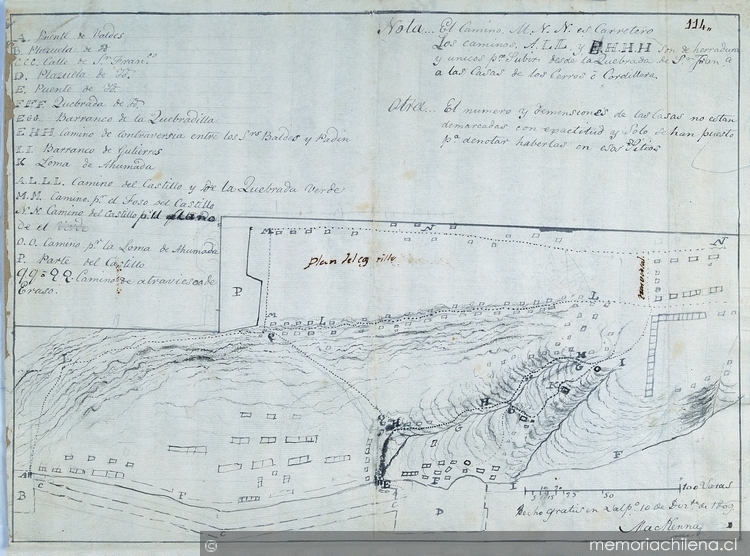 A. Puente de Valdes
B. Plazuela de
C.C.C. Calle de Sn. Franco.
D. Plazuela de
E. Puente de
F.F.F. Quebrada de
Barranco de la Quebradilla
E H H Camino de controversia entre los Srs. Baldes y Padin
I I Barranco de Gutierres
K Loma de Ahumada
A. L. L. L. Camino del Castillo y de la Quebrada Verde
M. M. Camino pa. el Foso del Castillo
N. N. Camino del Castillo pa. el plano
de el
O. O. Camino pa. la Loma de Ahumada
P. Parte del Castillo
Camino de atraviesa de
Eraso.
Nota... El Camino, M. N. N. es Carretero
Los caminos, A. L. L. y E. H. H. H son de herradura
y unicos pa. subir desde la Quebrada de Sn. Fran.
a las Casas de los Cerros ó Cordillera.
114
Otra... El numero y demensiones de las Casas no estan
demarcadas con exactitud y Solo se han puesto
pa. denotar haberlas en esos Sitios
M
N
N
P
Plan del castillo
M
L
L
L
Q
M
H
I
O
K
H
G
H
G
F
A
B
C
F
E
F
I
C
C
D
5
10
15
20
25
50
100 Varas
Hecho gratis en Valpo. 10 de de 1809
MacKenna
© memoriachilena.cl